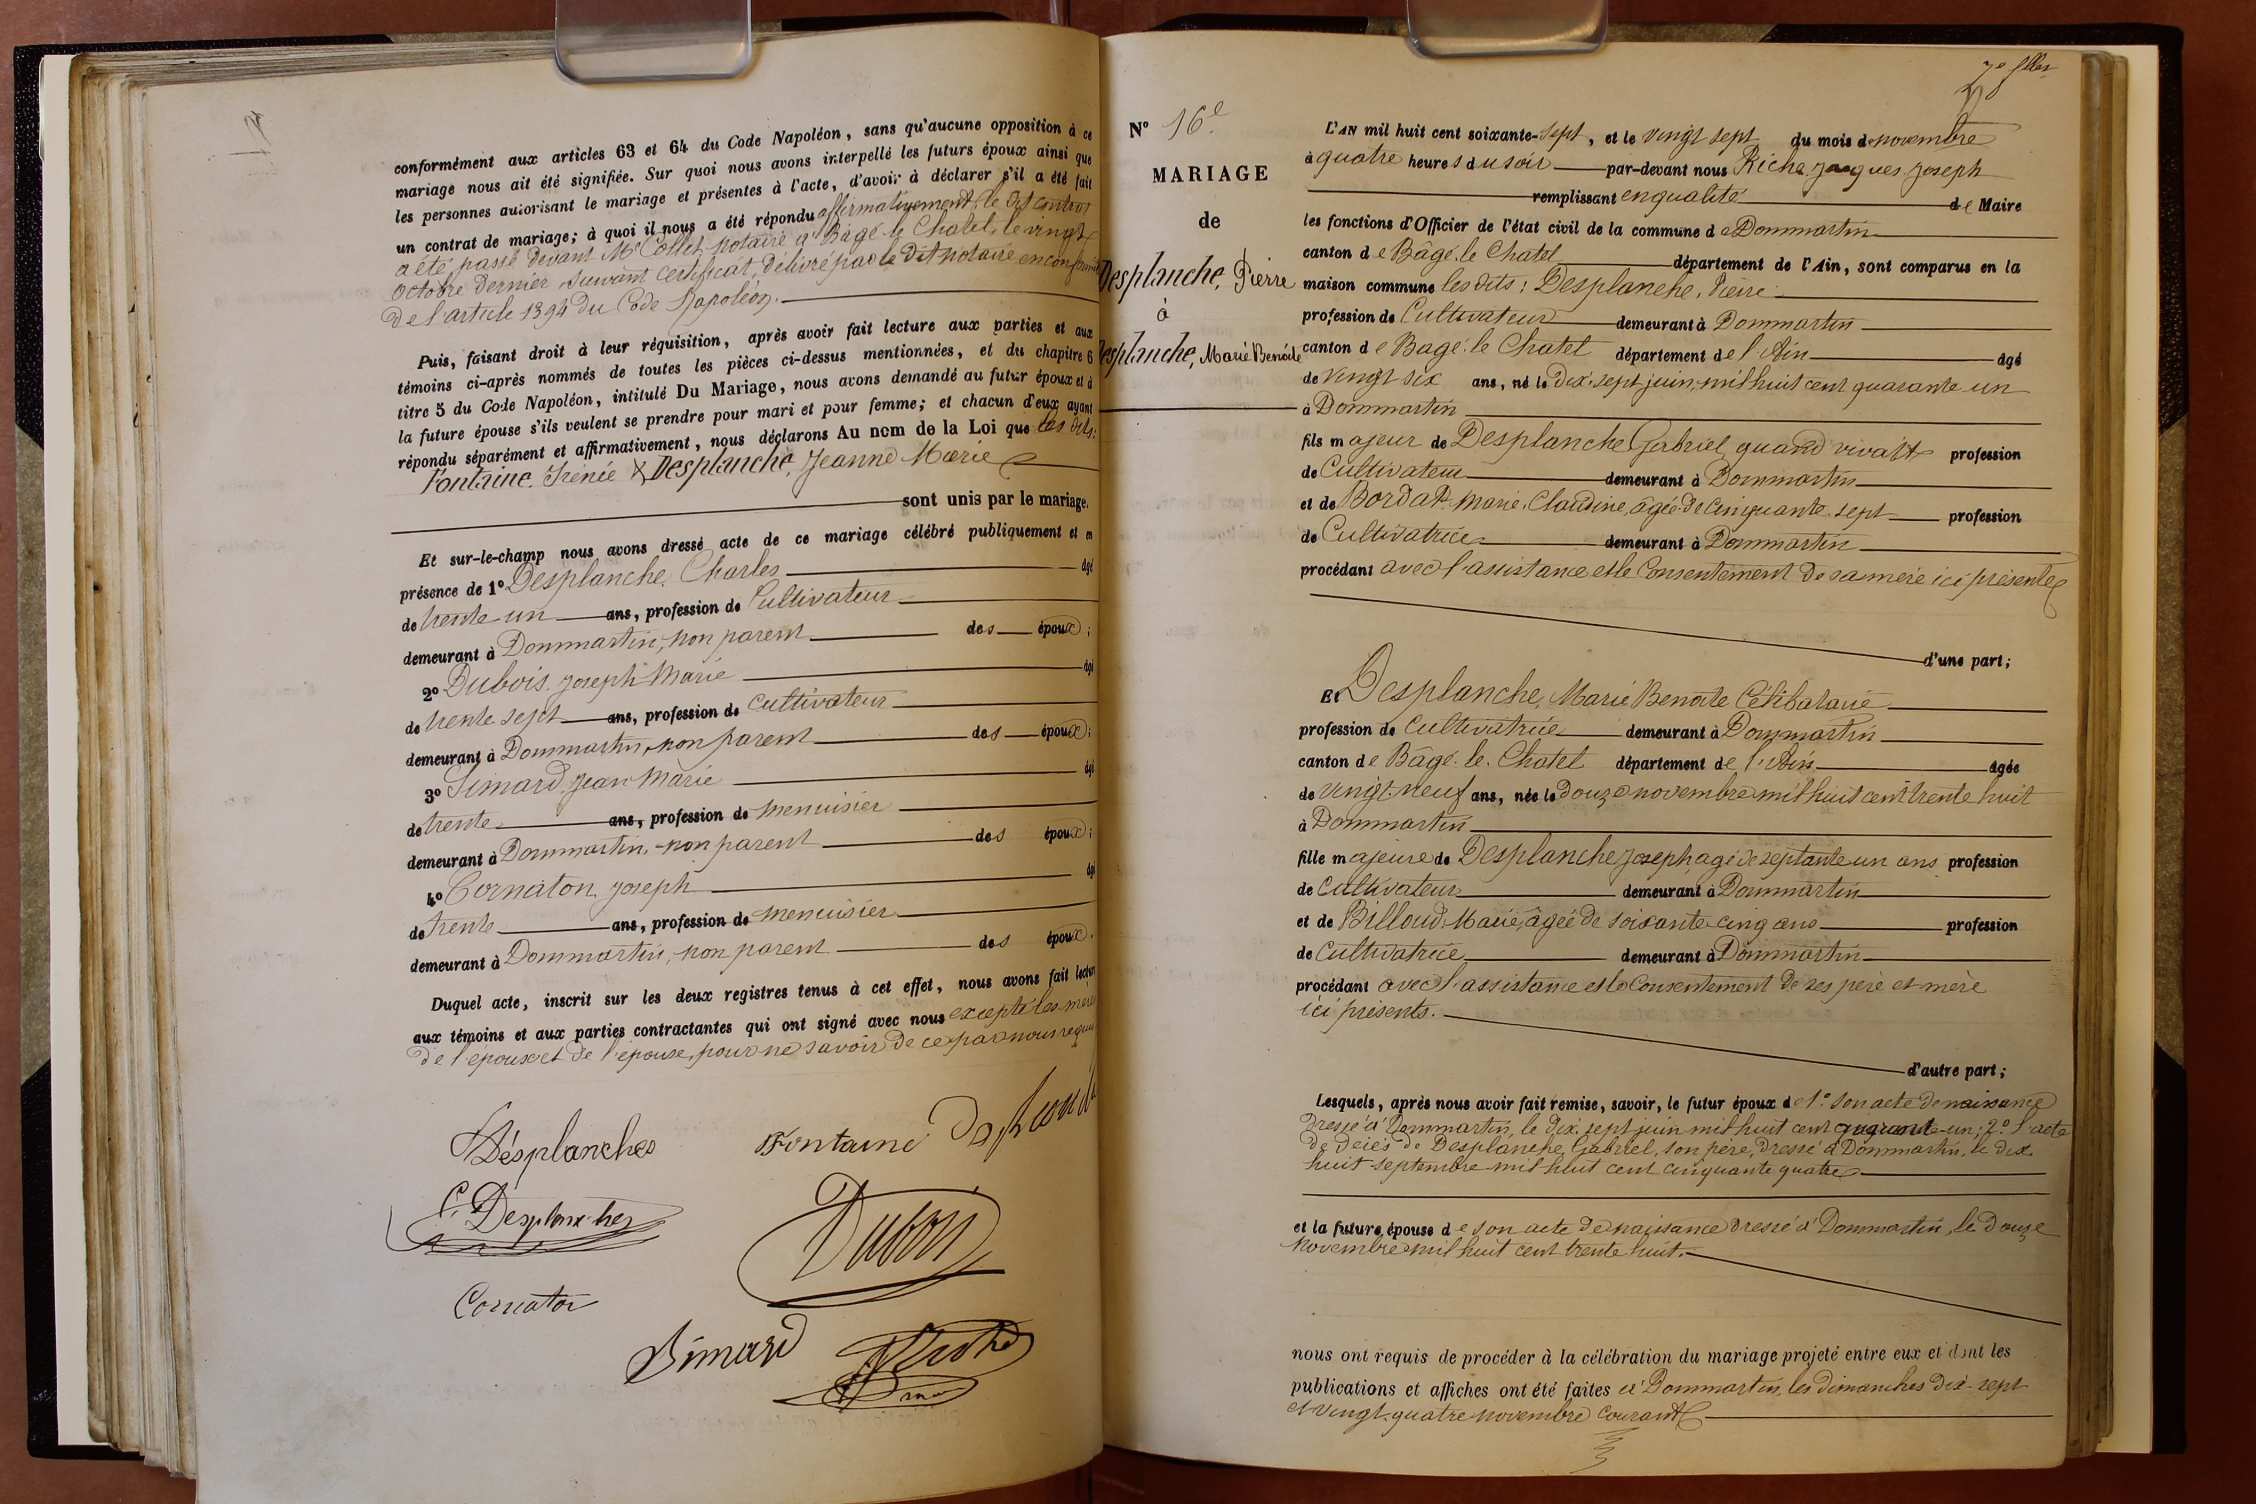 conformément aux articles 63 et 64 du Code Napoléon, sans qu'aucune opposition à ce
mariage nous ait été signifiée. Sur quoi nous avons interpellé les futurs époux ainsi que
les personnes autorisant le mariage et présentes à l'acte, d'avoir à déclarer s'il a été fait
un contrat de mariage; à quoi il nous a été répondu affirmativement, le dit contrat
a été passé devant Me Collet notaire à Bâgé-le Chatel, le vingt
octobre dernier, suivant certificat, délivré par le dit notaire en conformité
de l'article 1394 du Code Napoléon.
Puis, faisant droit à leur réquisition, après avoir fait lecture aux parties et aux
témoins ci-après nommés de toutes les pièces ci-dessus mentionnées, et du chapitre 6
titre 5 du Code Napoléon, intitulé Du Mariage, nous avons demandé au futur époux et à
la future épouse s'ils veulent se prendre pour mari et pour femme; et chacun d'eux ayant
répondu séparément et affirmativement, nous déclarons Au nom de la Loi que les dits:
Fontaine, Irénée & Desplanche, Jeanne Marie
sont unis par le mariage.
Et sur-le-champ nous avons dressé acte de ce mariage célébré publiquement et en
présence de 1° Desplanche, Charles âgé
de trente un ans, profession de Cultivateur
demeurant à Dommartin, non parent des époux;
2° Dubois, Joseph Marie âgé
de trente sept ans, profession de cultivateur
demeurant à Dommartin, non parent des époux;
3° Simard, Jean Marie âgé
de trente ans, profession de menuisier
demeurant à Dommartin, non parent des époux;
4° Cornaton, Joseph âgé
de trente ans, profession de menuisier
demeurant à Dommartin, non parent des époux.
Duquel acte, inscrit sur les deux registres tenus à cet effet, nous avons fait lecture
aux témoins et aux parties contractantes qui ont signé avec nous excepté les mères
de l'époux et de l'épouse, pour ne savoir de ce par nous requis
Desplanches Fontaine
C. Desplanches Dubois
Cornaton
Simard Riche
7e
N° 16e
MARIAGE
de
Desplanche, Pierre
à
Desplanche, Marie Benoite
L'AN mil huit cent soixante-sept, et le vingt sept du mois de novembre
à quatre heures du soir par-devant nous Riche Jacques Joseph
remplissant en qualité de Maire
les fonctions d'Officier de l'état civil de la commune de Dommartin
canton de Bâgé-le Chatel département de l'Ain, sont comparus en la
maison commune les dits: Desplanche, Pierre
profession de Cultivateur demeurant à Dommartin
canton de Bagé-le Chatel département de l'Ain âgé
de vingt six ans, né le Dix-sept juin mil huit cent quarante un
à Dommartin
fils majeur de Desplanche Gabriel, quand vivait profession
de Cultivateur demeurant à Dommartin
et de Bordat Marie Claudine, âgée de cinquante sept profession
de Cultivatrice demeurant à Dommartin
procédant avec l'assistance et le consentement de sa mère ici présente
d'une part;
Et Desplanche, Marie Benoite Célibataire
profession de Cultivatrice demeurant à Dommartin
canton de Bâgé-le-Chatel département de l'Ain âgée
de vingt-neuf ans, née le douze novembre mil huit cent trente huit
à Dommartin
fille majeure de Desplanche Joseph, agé de septante un ans profession
de Cultivateur demeurant à Dommartin
et de Billoud Marie, âgée de soixante cinq ans profession
de Cultivatrice demeurant à Dommartin
procédant avec l'assistance et le consentement de ses père et mère
ici présents.
d'autre part;
Lesquels, après nous avoir fait remise, savoir, le futur époux de 1° son acte de naissance
dressé à Dommartin, le dix sept juin mil huit cent quarante-un; 2° l'acte
de décès de Desplanche, Gabriel, son père, dressé à Dommartin, le dix
huit septembre mil huit cent cinquante quatre
et la future épouse de son acte de naissance dressé à Dommartin, le douze
novembre mil huit cent trente huit.
nous ont requis de procéder à la célébration du mariage projeté entre eux et dont les
publications et affiches ont été faites à Dommartin, les dimanches dix-sept
et vingt-quatre novembre courant